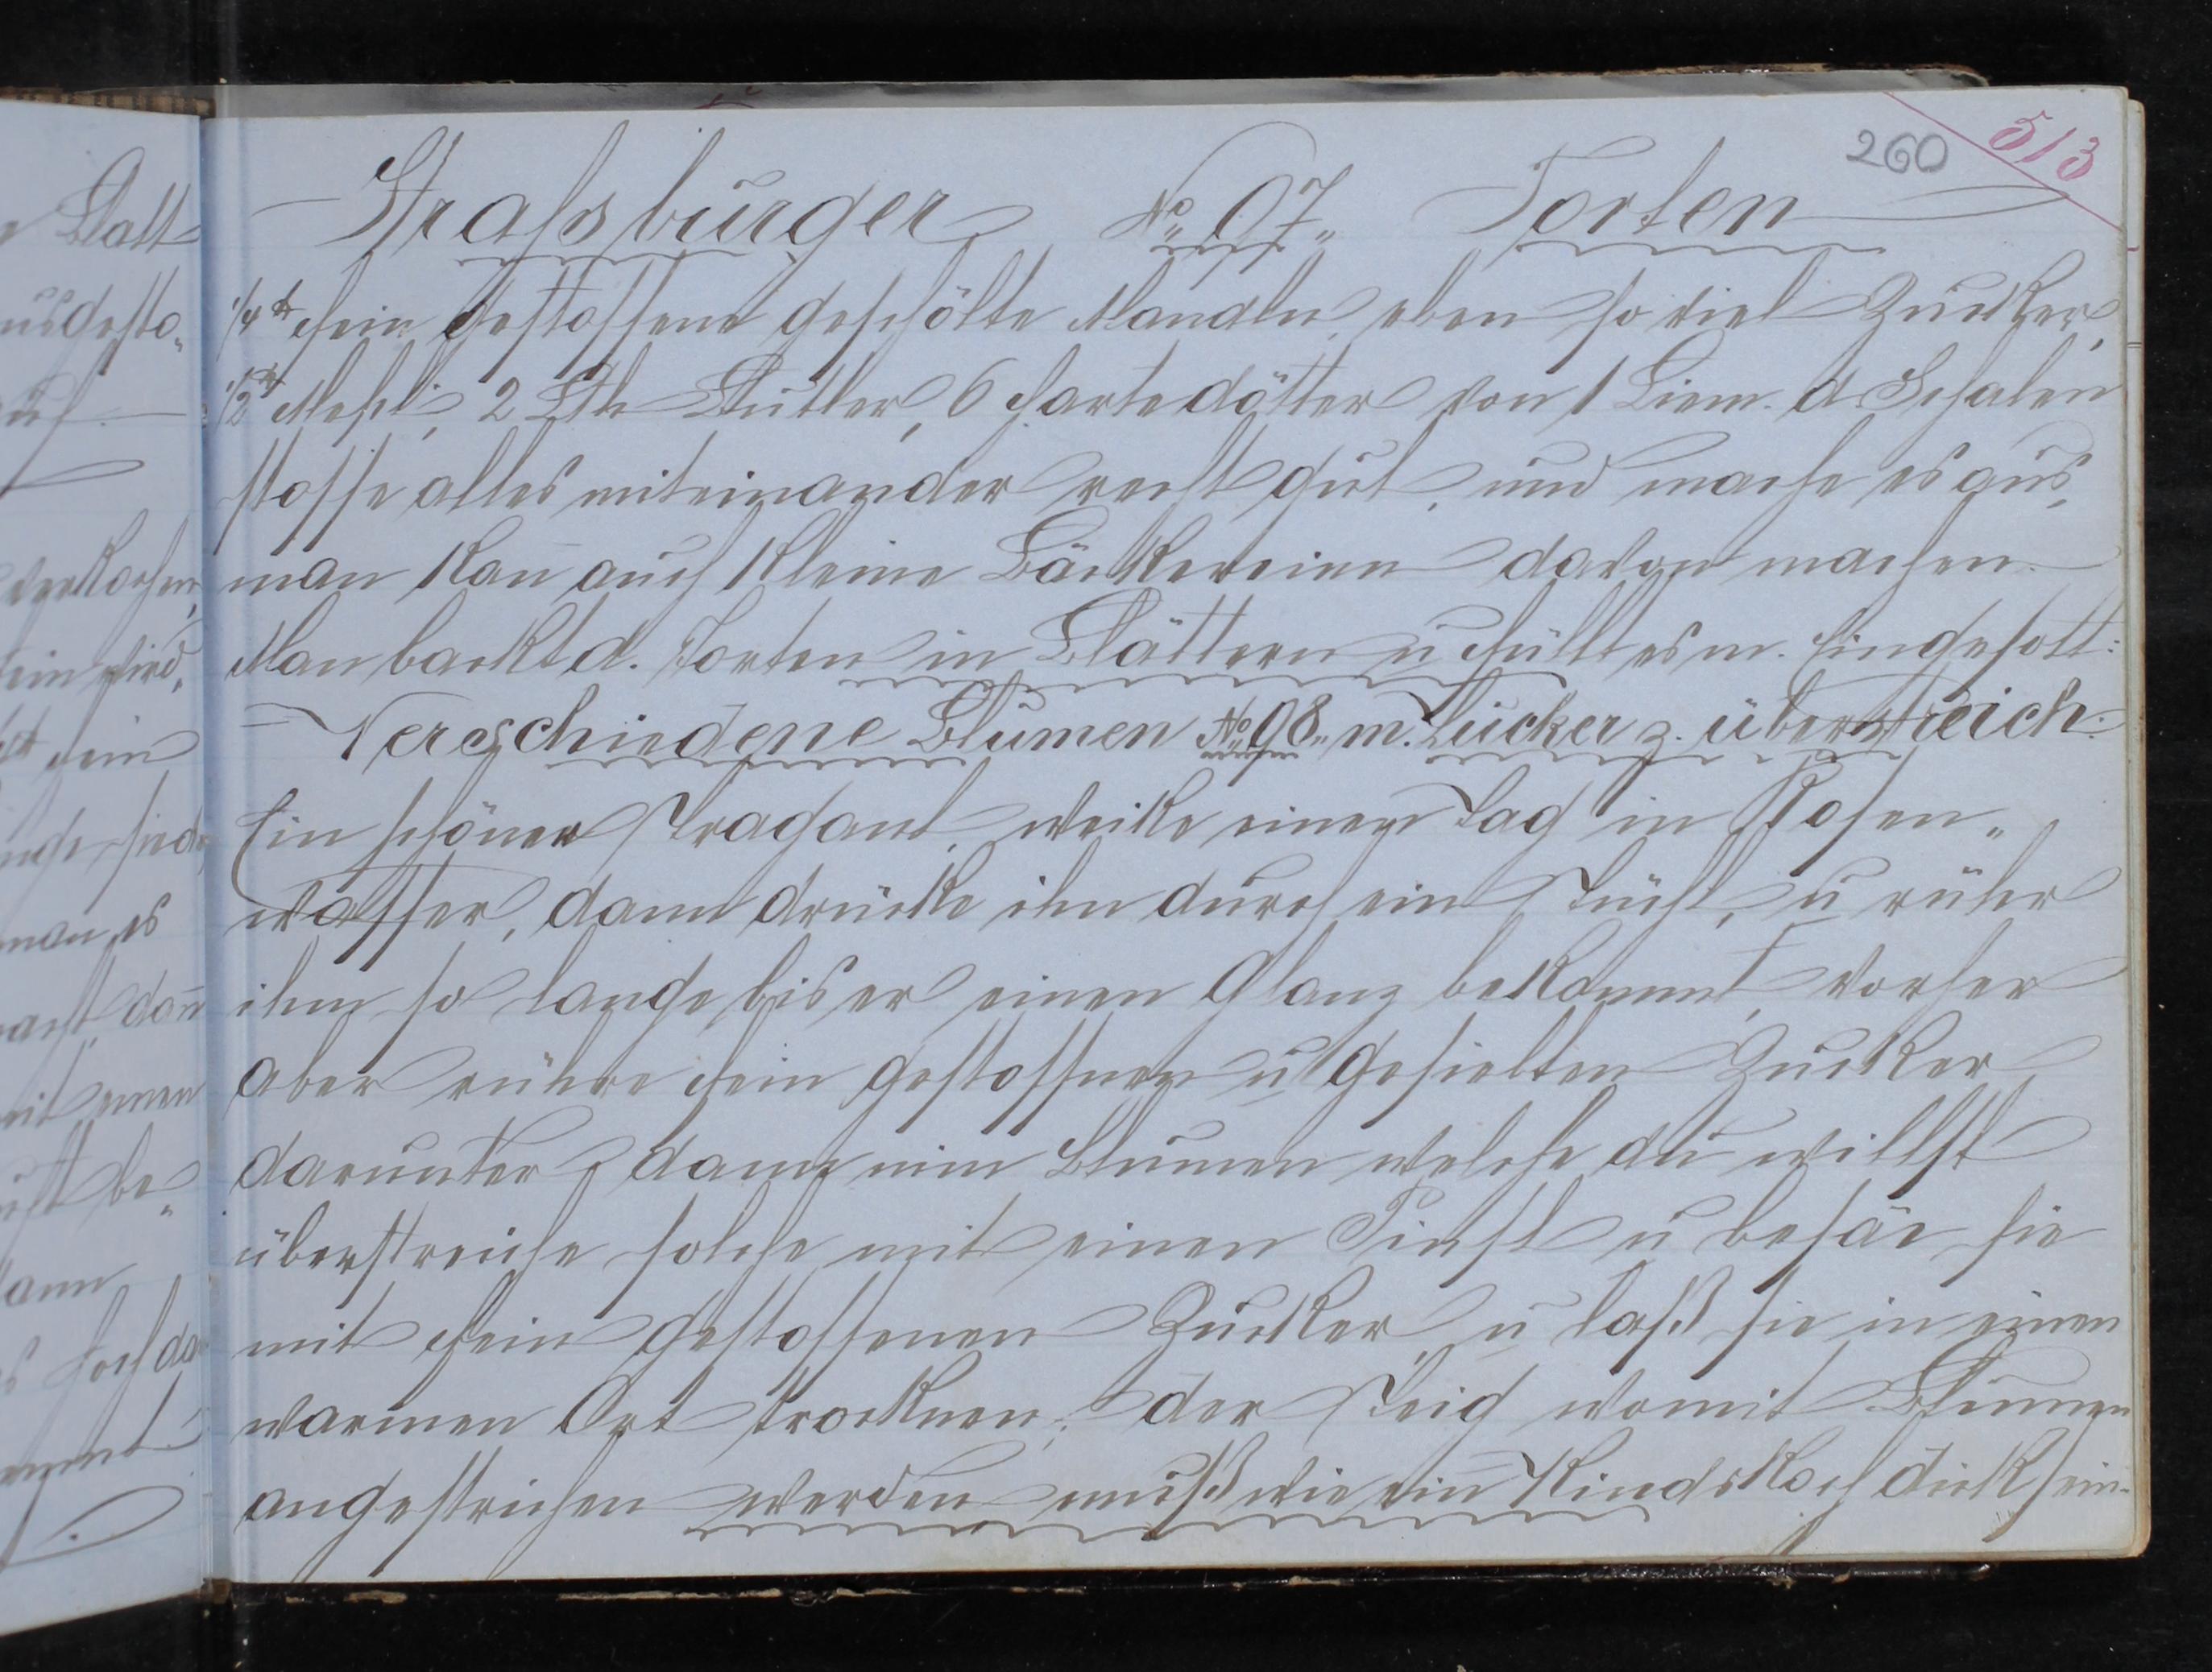 260
513
Straßburger No 97„ Torten
1/4 ℔ fein gestossene geschölte Mandln, eben so viel Zucker,
1/2 ℔ Mehl, 2 Lth Butter, 6 harte dötter von 1 Liem. d Schalen
stosse alles miteinander recht gut, und mache es aus,
man kan̄ auch kleine Bäckereien davon machen.
Man backt d. Torten in Blättern u füllt es m. Eingesott:
Verschiedene Blumen No 98„ m. Zucker z. überstreich.
Ein schöner Tragant, weike einen Tag in Rosen„
wasser, dann drücke ihn durch ein Tuch, u rühr
ihm so lange bis er einen Glanz bekommt, vorher
aber rühre fein gestossnen u gesiebten Zucker
darunter, dann nim Blumen welche du willst
überstreiche solche mit einen Pinsl u besäe sie
mit fein gestossenen Zucker, u laß sie in einen
warmen Ort trocknen; der Teig womit Blumen
angestrichen werden muß wie ein Kindskoch dick sein.
Blatt
dan̄
man es